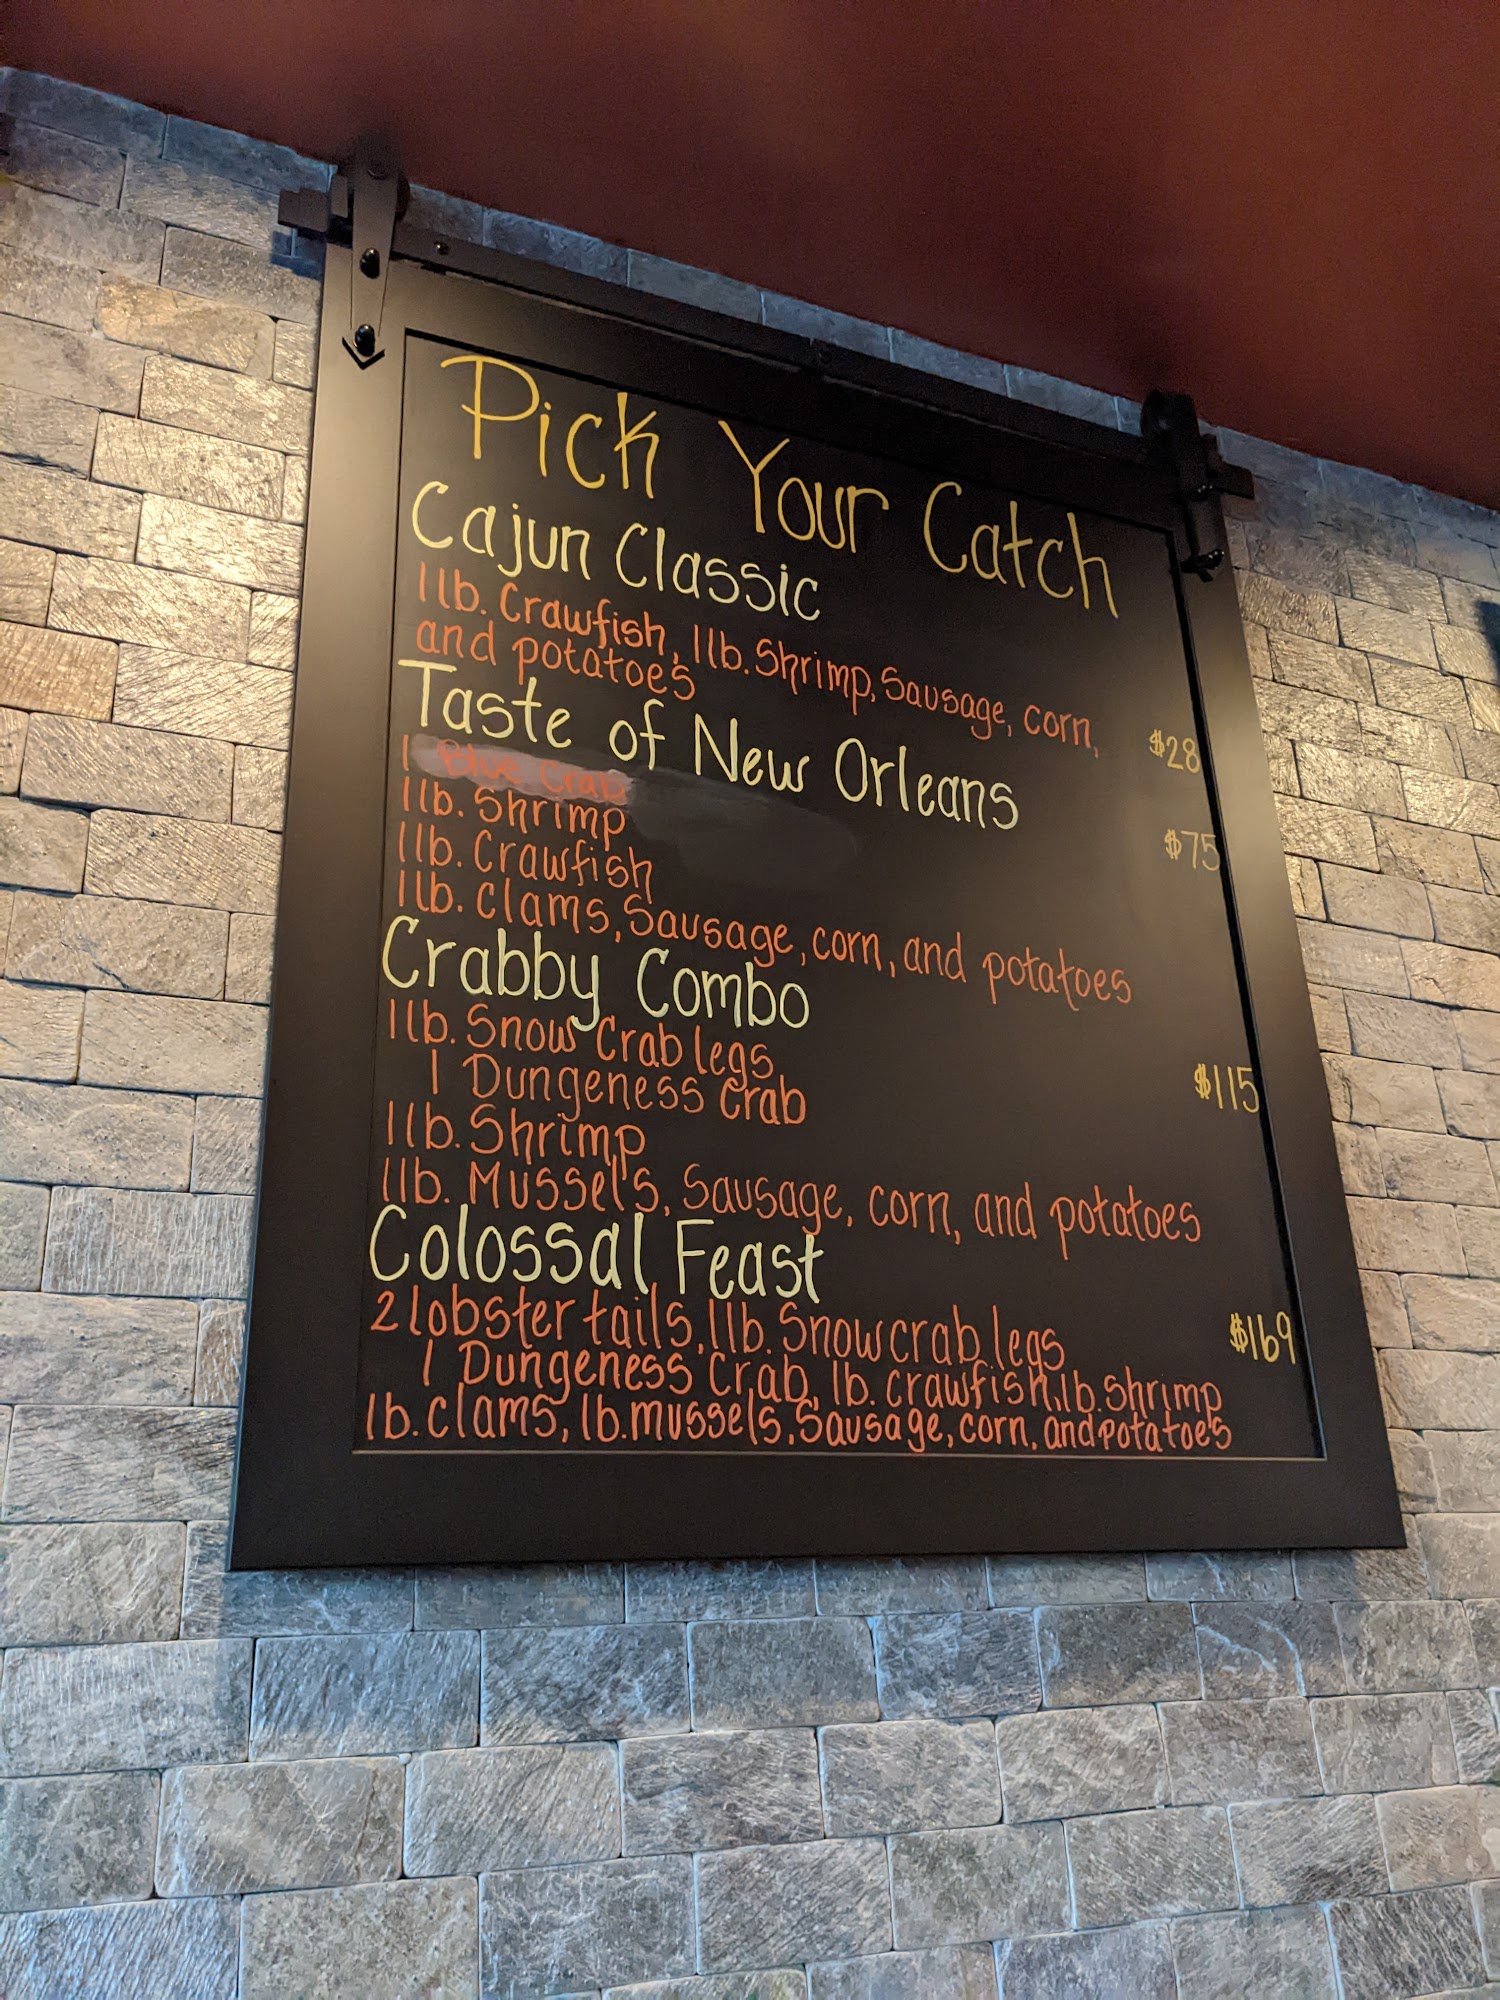 Pick Your Catch
Cajun Classic
1 lb. Crawfish, 1 lb. Shrimp, Sausage, corn,
and potatoes $28
Taste of New Orleans
1 Blue Crab $75
1 lb. Shrimp
1 lb. Crawfish
1 lb. Clams, Sausage, corn, and potatoes
Crabby Combo
1 lb. Snow Crab legs $115
1 Dungeness Crab
1 lb. Shrimp
1 lb. Mussels, Sausage, corn, and potatoes
Colossal Feast
2 lobster tails, 1 lb. Snow crab legs $169
1 Dungeness Crab, 1b. crawfish, 1b. shrimp
1b. clams, 1b. mussels, Sausage, corn, and potatoes